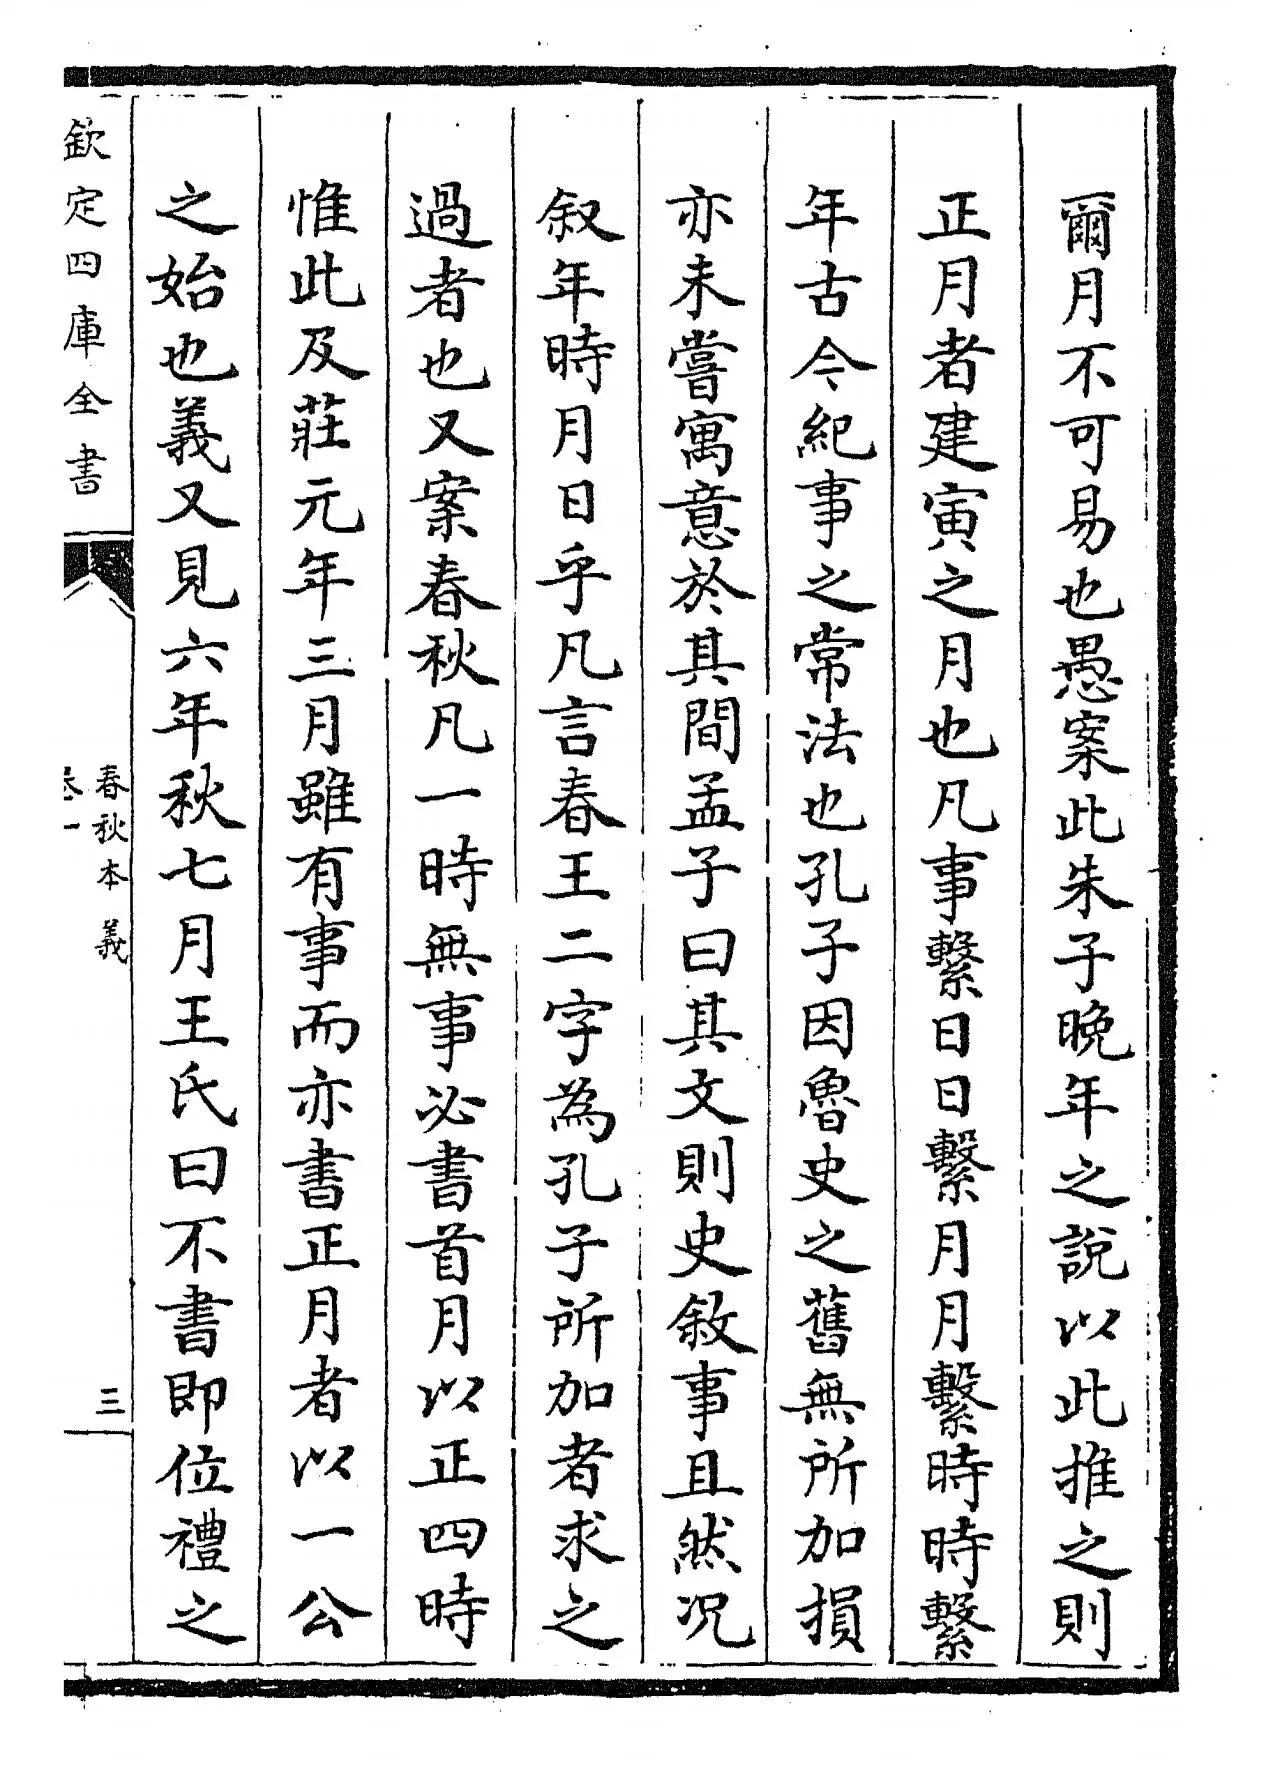 爾月不可易也愚案此朱子晚年之說以此推之則
正月者建寅之月也凡事繫日日繫月月繫時時繫
年古今紀事之常法也孔子因魯史之舊無所加損
亦未嘗寓意於其間孟子曰其文則史敘事且然况
叙年時月日乎凡言春王二字為孔子所加者求之
過者也又案春秋凡一時無事必書首月以正四時
惟此及莊元年三月雖有事而亦書正月者以一公
之始也義又見六年秋七月王氏曰不書即位禮之
欽定四庫全書
春秋本義
卷一
三